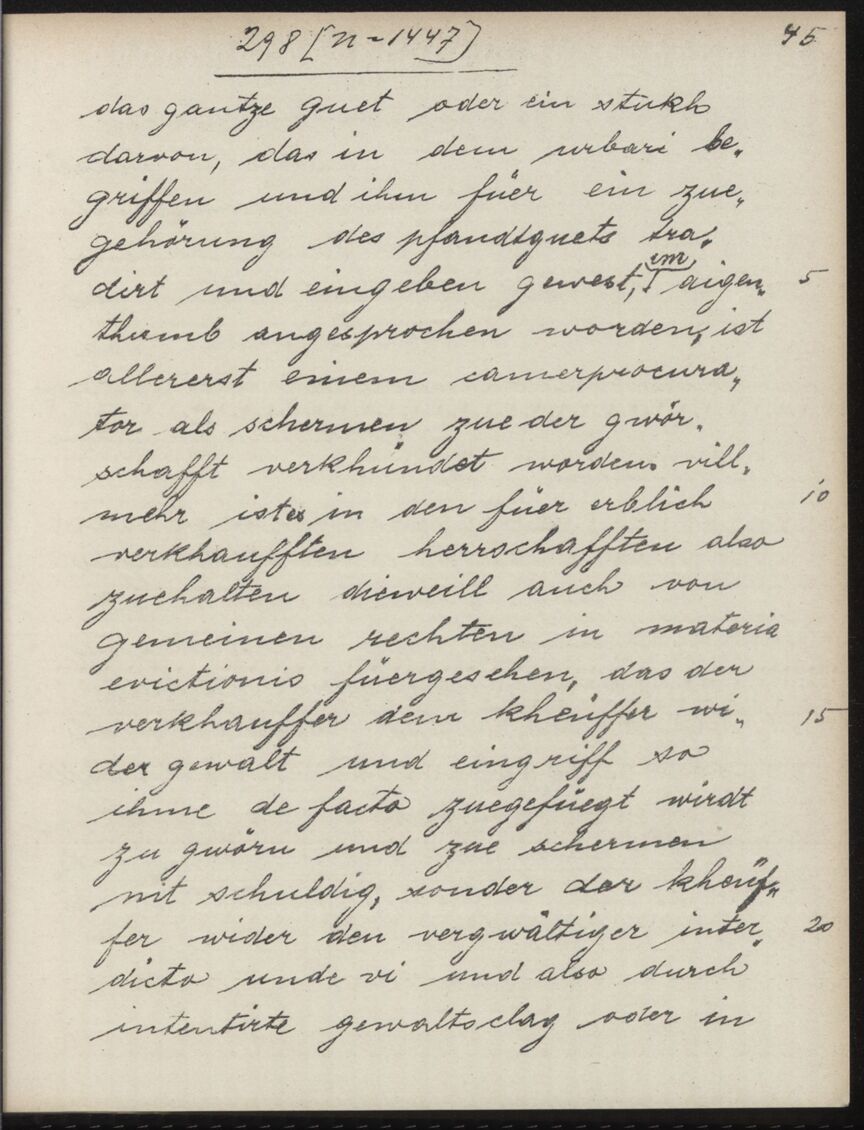 298 [n-1447] 45
das gantze guet oder ein stukh
darvon, das in dem urbari be„
griffen und ihm füer ein zue„
gehörung des pfandtguets tra„
dirt und eingeben gewest, im aigen„ 5
thumb angesprochen worden, ist
allererst einem camerprocura„
tor als schermen zue der gwör„
schafft verkhündet worden. vill„
mehr ist es in den füer erblich 10
verkhaufften herrschafften also
zuehalten dieweill auch von
gemeinen rechten in materia
evictionis füergesehen, das der
verkhauffer dem kheüffer wi„ 15
der gewalt und eingriff so
ihme de facto zuegefüegt wirdt
zu gwörn und zue schermen
nit schuldig, sonder der kheüf„
fer wider den vergwältiger inter„ 20
dicto unde vi und also durch
intentirte gewaltsclag oder in